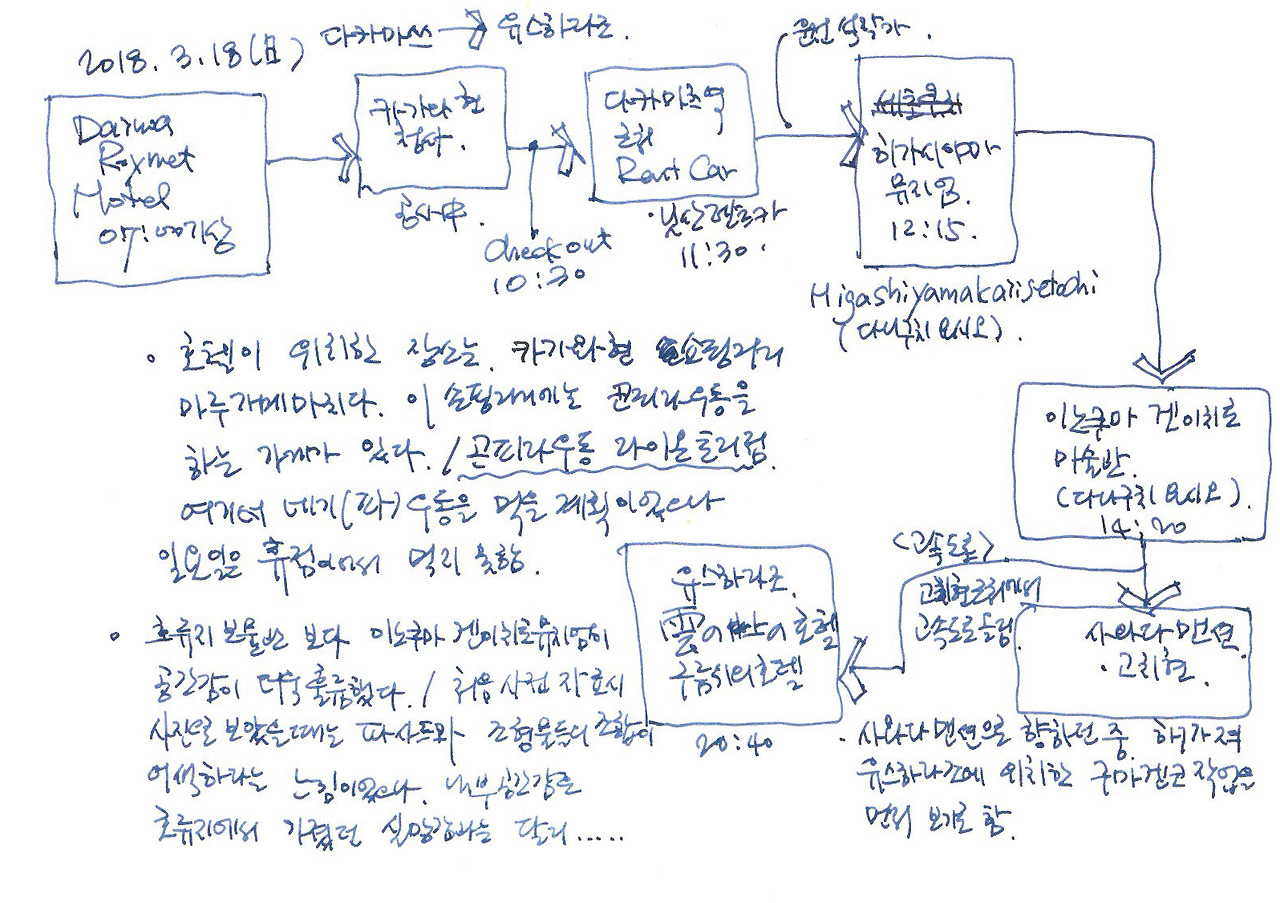 2018. 3.18(日) 다카마쓰 → 유스하라초.
Daiwa
Roynet
Hotel
07:00 기상
카가와현
청사.
공사中.
check out
10:30
다카마츠역
근처
Rent Car
·닛산렌트카
11:30.
히가시야마
뮤지엄.
12:15.
Higashiyamakaiisetochi
(다니구치 요시오).
이노쿠마 겐이치로
미술관.
(다니구치 요시오).
14:20
<고속도로>
고치현근처에서
고속도로들림
사와다 맨션.
·고치현.
유스하라초.
雲の上の호텔
구름위의호텔
20:40
• 호텔이 위치한 장소는 카가와현 쇼핑거리
마루가메마치다. 이 쇼핑거리에는 곤피라우동을
하는 가게가 있다. / 곤피라우동 라이온토리점.
여기서 네기(파)우동을 먹을 계획이었으나
일요일은 휴점이어서 먹지 못함.
• 호류지 보물관 보다 이노쿠마 겐이치로뮤지엄이
공간감이 더욱 훌륭했다. / 처음 사전 자료시
사진으로 보았을때는 파사드와 조형물들의 조합이
어색하다는 느낌이었으나. 내부공간감은
호류지에서 가졌던 실망감과는 달리......
· 사와다맨션으로 향하던 중, 해가져
유스하라초에 위치한 구마겐코 작업을
먼저 보기로 함.